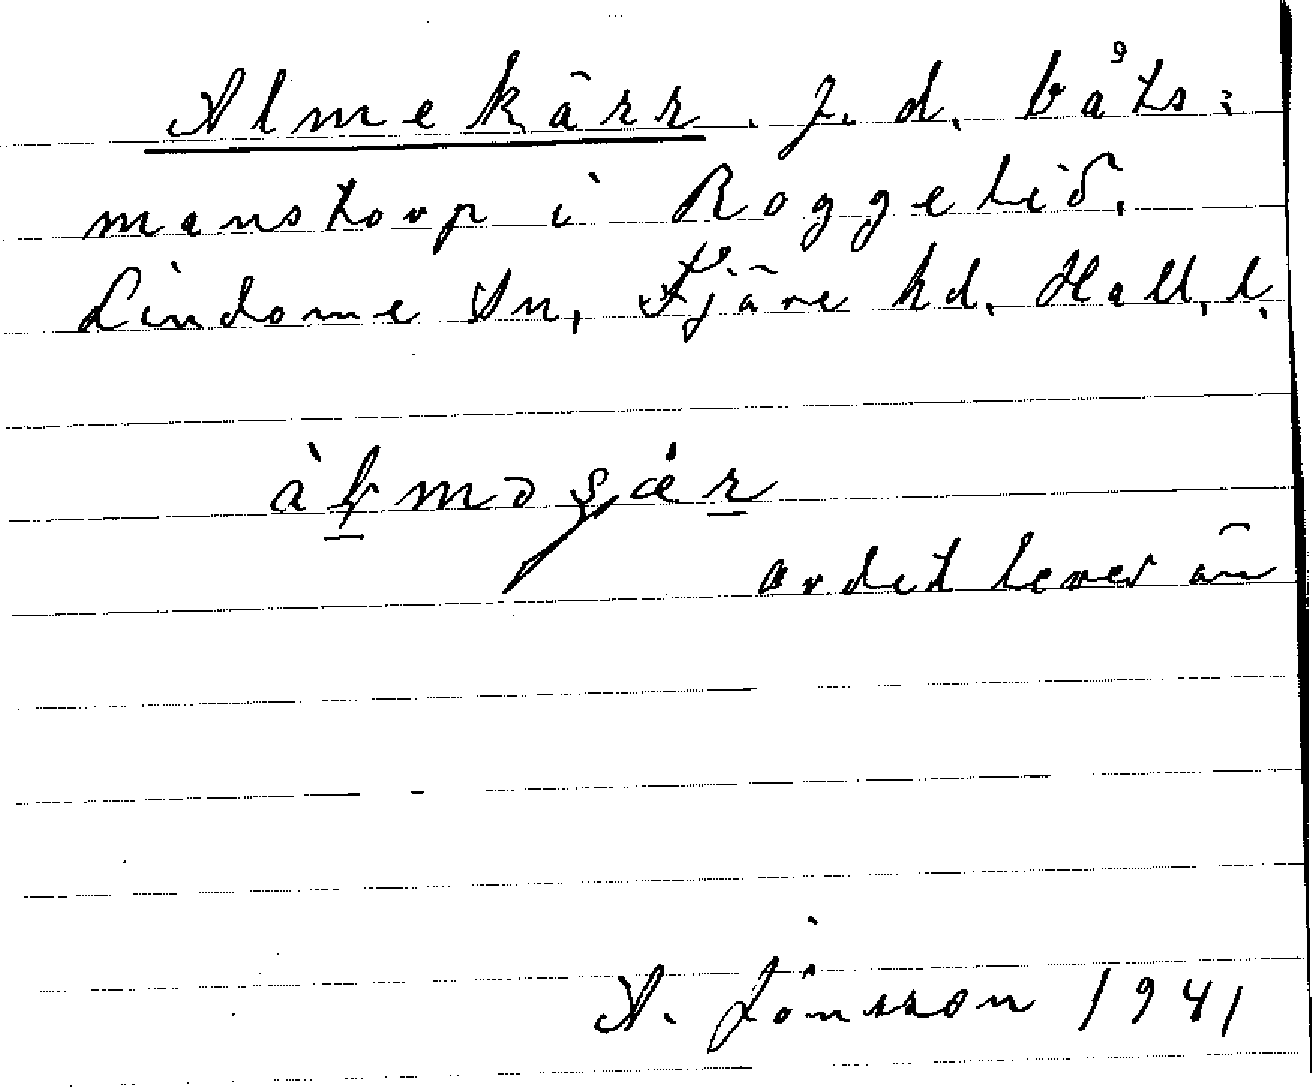 Almekärr. f. d. båts=
manstorp i Roggelid.
Lindome sn, Fjäre hd. Hall. l.
ordet lever än
A. Jönsson 1941